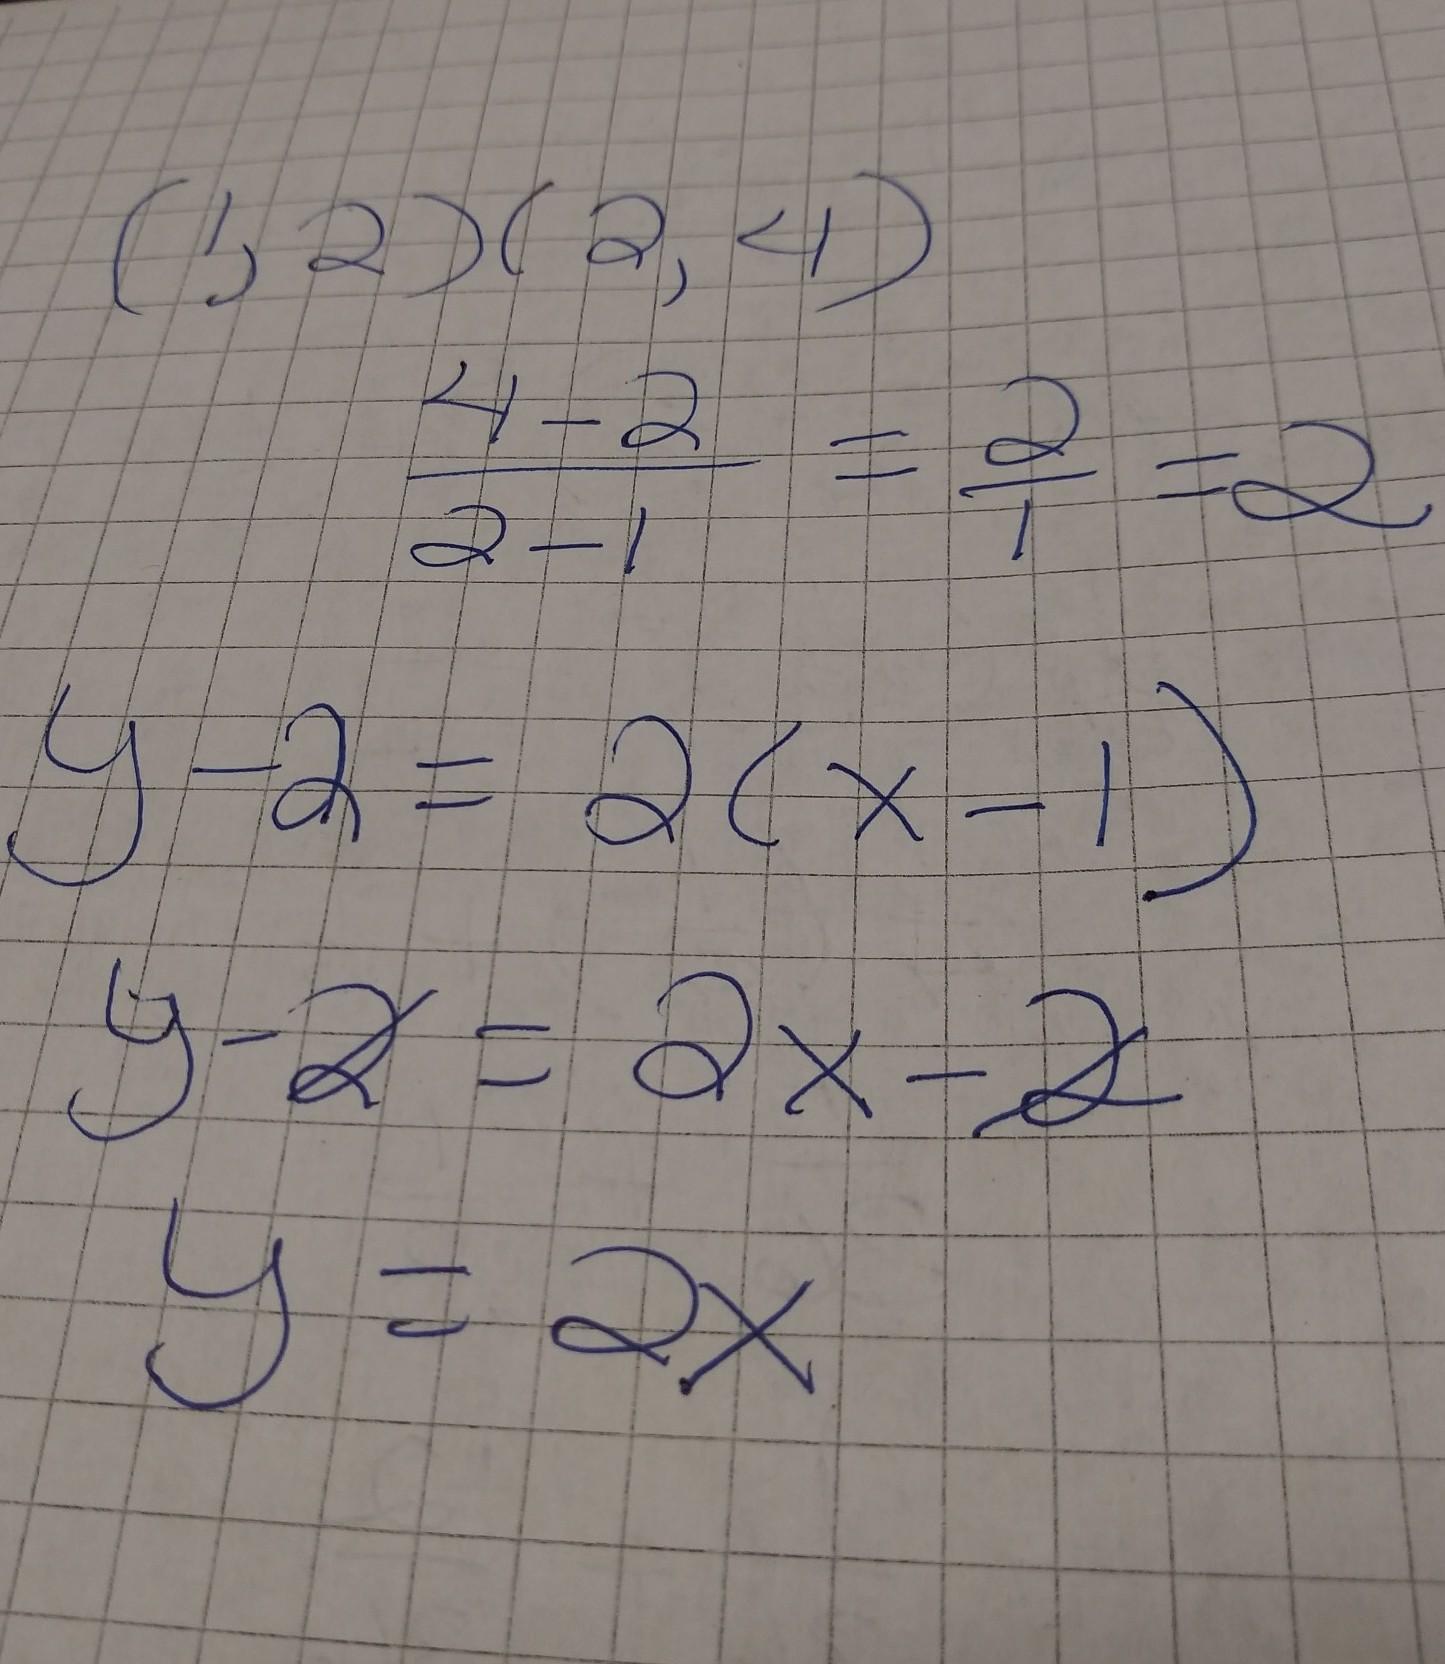 (1,2)(2,4)
4-2/2-1 = 2/1 = 2
y-2 = 2(x-1)
y-2 = 2x-2
y = 2x